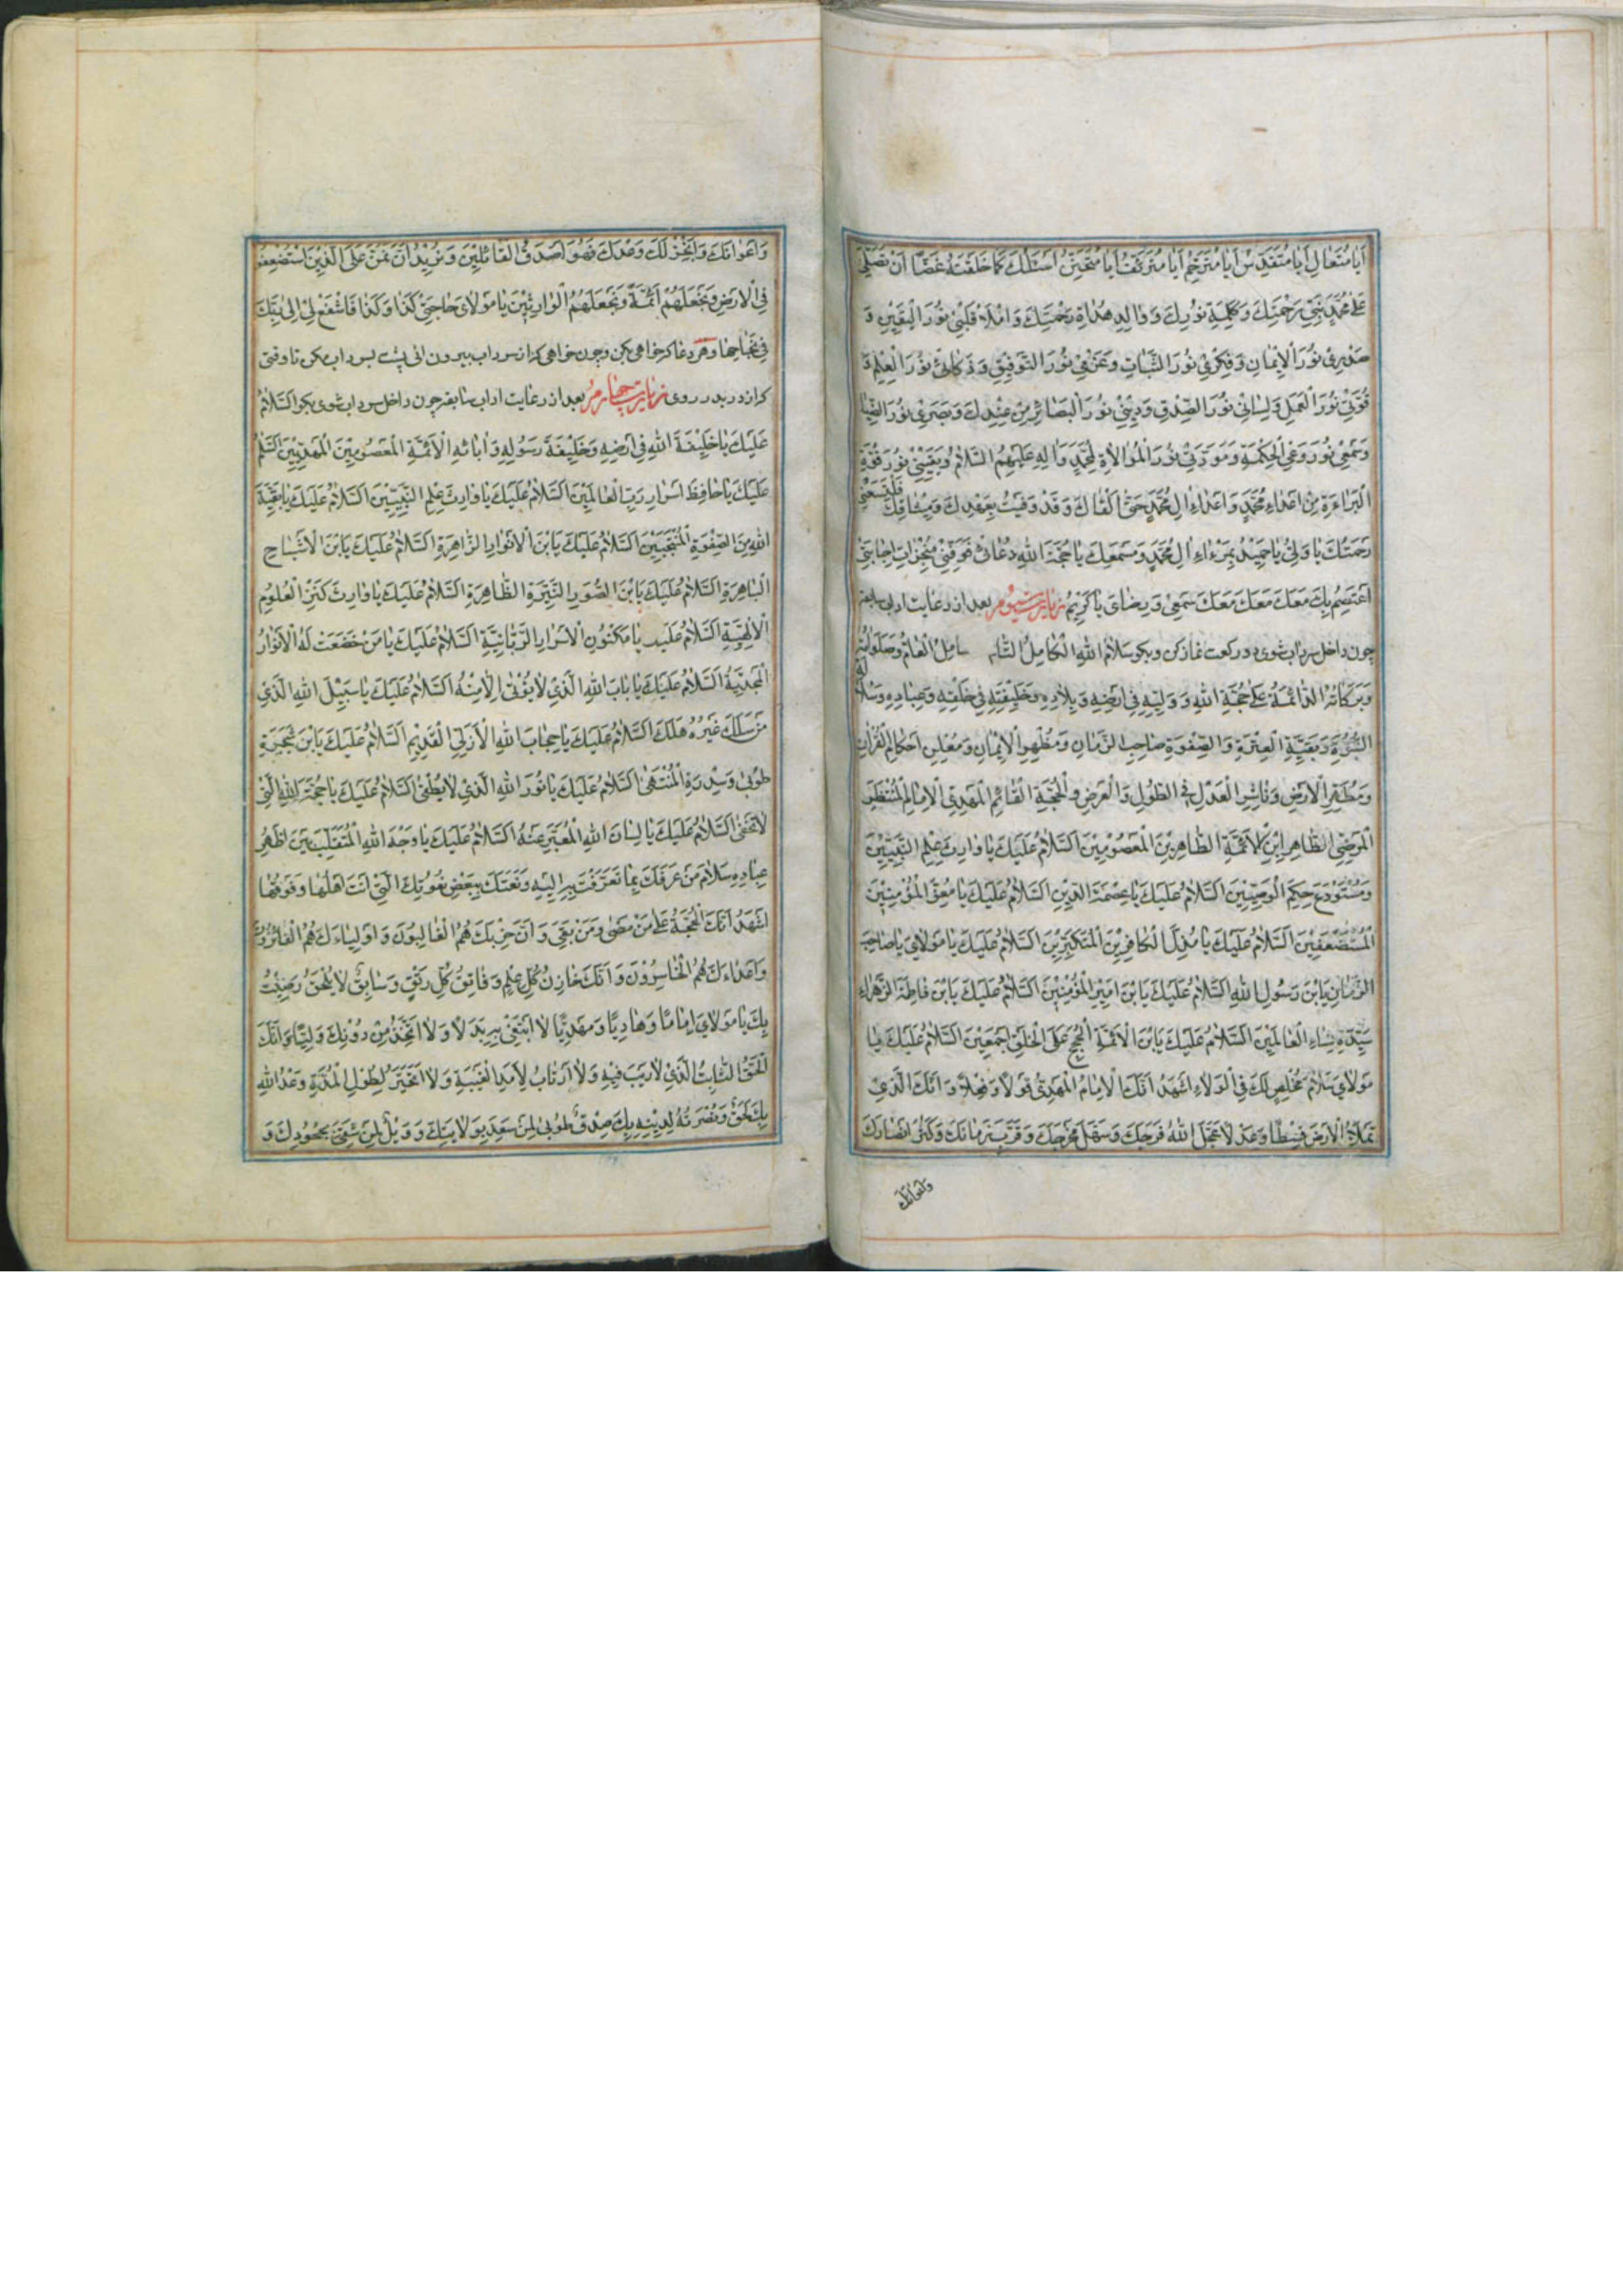 أَيا مُتَعالِ أَيا مُتَقَدِّسُ أَيا مُتَرَحِّمُ أَيا مُتَرَئِّفُ أَيا مُتَحَنِّنُ اَسْئَلُكَ كَما خَلَقْتَهُ غَضًّا اَنْ تُصَلِّيَ
عَلى مُحَمَّدٍ نَبِيِّ رَحْمَتِكَ وَكَلِمَةِ نُورِكَ وَوالِدِ هُداةِ رَحْمَتِكَ وَامْلَأْ قَلْبِي نُورَ الْيَقِينِ وَ
صَدْرِي نُورَ الْإِيمانِ وَفِكْرِي نُورَ الثَّباتِ وَعَزْمِي نُورَ التَّوْفِيقِ وَذَكائِي نُورَ الْعِلْمِ وَ
قُوَّتِي نُورَ الْعَمَلِ وَلِسانِي نُورَ الصِّدْقِ وَدِينِي نُورَ الْبَصائِرِ مِنْ عِنْدِكَ وَبَصَرِي نُورَ الضِّيا
وَسَمْعِي نُورَ وَعْيِ الْحِكْمَةِ وَمَوَدَّتِي نُورَ الْمُوالاةِ لِمُحَمَّدٍ وَالِهِ عَلَيْهِمُ السَّلامُ وَيَقِينِي نُورَ قُوَّةِ
الْبَراءَةِ مِنْ اَعْداءِ مُحَمَّدٍ وَاَعْداءِ الِ مُحَمَّدٍ حَتّى اَلْقاكَ وَقَدْ وَفَيْتُ بِعَهْدِكَ وَمِيثاقِكَ فَلْيَسَعْنِي
رَحْمَتُكَ يا وَلِيُّ يا حَمِيدُ بِمَرْءاءِ الِ مُحَمَّدٍ وَمَسْمَعِكَ يا حُجَّةَ اللهِ دُعائِي فَوَفِّنِي مُنْجِزاتِ اِجابَتِي
اَعْتَصِمُ بِكَ مَعَكَ مَعَكَ مَعَكَ سَمْعِي وَرِضايَ يا كَرِيمُ زیارت سیوم بعد از رعایت اداب سابقه
چون داخل سرداب شوی دو رکعت نماز کن و بکو سَلامُ اللهِ الْكامِلُ التّامُّ الشامِلُ الْعامُّ وَصَلَواتُهُ
وَبَرَكاتُهُ الدّائِمَةُ عَلى حُجَّةِ اللهِ وَوَلِيِّهِ فِي اَرْضِهِ وَبِلادِهِ وَخَلِيفَتِهِ فِي خَلْقِهِ وَعِبادِهِ وَسُلالَةِ
النُّبُوَّةِ وَبَقِيَّةِ الْعِتْرَةِ وَالصَّفْوَةِ صاحِبِ الزَّمانِ وَمُظْهِرِ الْإِيمانِ وَمُعْلِنِ اَحْكامِ الْقُرْانِ
وَمُطَهِّرِ الْاَرْضِ وَناشِرِ الْعَدْلِ فِي الطُّولِ وَالْعَرْضِ وَالْحُجَّةِ الْقائِمِ الْمَهْدِيِّ الْاِمامِ الْمُنْتَظَرِ
الْمَرْضِيِّ الطّاهِرِ ابْنِ الْاَئِمَّةِ الطّاهِرِينَ الْمَعْصُومِينَ اَلسَّلامُ عَلَيْكَ يا وارِثَ عِلْمِ النَّبِيِّينَ
وَمُسْتَوْدَعَ حِكَمِ الْوَصِيِّينَ اَلسَّلامُ عَلَيْكَ يا عِصْمَةَ الدِّينِ اَلسَّلامُ عَلَيْكَ يا مُعِزَّ الْمُؤْمِنِينَ
الْمُسْتَضْعَفِينَ اَلسَّلامُ عَلَيْكَ يا مُذِلَّ الْكافِرِينَ الْمُتَكَبِّرِينَ اَلسَّلامُ عَلَيْكَ يا مَوْلايَ يا صاحِبَ
الزَّمانِ يَابْنَ رَسُولِ اللهِ اَلسَّلامُ عَلَيْكَ يَابْنَ اَمِيرِ الْمُؤْمِنِينَ اَلسَّلامُ عَلَيْكَ يَابْنَ فاطِمَةَ الزَّهْراءِ
سَيِّدَةِ نِساءِ الْعالَمِينَ اَلسَّلامُ عَلَيْكَ يَابْنَ الْاَئِمَّةِ الْحُجَجِ عَلَى الْخَلْقِ اَجْمَعِينَ اَلسَّلامُ عَلَيْكَ يا
مَوْلايَ سَلامَ مُخْلِصٍ لَكَ فِي الْوَلاءِ اَشْهَدُ اَنَّكَ الْاِمامُ الْمَهْدِيُّ قَوْلًا وَفِعْلًا وَاَنَّكَ الَّذِي
تَمْلَأُ الْاَرْضَ قِسْطًا وَعَدْلًا عَجَّلَ اللهُ فَرَجَكَ وَسَهَّلَ مَخْرَجَكَ وَقَرَّبَ زَمانَكَ وَكَثَّرَ اَنْصارَكَ
وَاَعْوانَكَ
وَاَعْوانَكَ وَاَنْجَزَ لَكَ وَعْدَكَ فَهُوَ اَصْدَقُ الْقائِلِينَ وَنُرِيدُ اَنْ نَمُنَّ عَلَى الَّذِينَ اسْتُضْعِفُوا
فِي الْاَرْضِ وَنَجْعَلَهُمْ اَئِمَّةً وَنَجْعَلَهُمُ الْوارِثِينَ يا مَوْلايَ حاجَتِي كَذا وَكَذا فَاشْفَعْ لِي اِلى رَبِّكَ
فِي نَجاحِها وهر دعا که خواهی بکن وچون خواهی که از سرداب بیرون ائی پشت بسرداب مکن تا وقتی
که از در بدر روی زیارت چهارم بعد از رعایت اداب سابقه چون داخل سرداب شوی بکو اَلسَّلامُ
عَلَيْكَ يا خَلِيفَةَ اللهِ فِي اَرْضِهِ وَخَلِيفَةَ رَسُولِهِ وَابائِهِ الْاَئِمَّةِ الْمَعْصُومِينَ الْمَهْدِيِّينَ اَلسَّلامُ
عَلَيْكَ يا حافِظَ اَسْرارِ رَبِّ الْعالَمِينَ اَلسَّلامُ عَلَيْكَ يا وارِثَ عِلْمِ النَّبِيِّينَ اَلسَّلامُ عَلَيْكَ يا بَقِيَّةَ
اللهِ مِنَ الصَّفْوَةِ الْمُنْتَجَبِينَ اَلسَّلامُ عَلَيْكَ يَابْنَ الْاَنْوارِ الزّاهِرَةِ اَلسَّلامُ عَلَيْكَ يَابْنَ الْاَشْباحِ
الْباهِرَةِ اَلسَّلامُ عَلَيْكَ يَابْنَ الصُّوَرِ النَّيِّرَةِ الطّاهِرَةِ اَلسَّلامُ عَلَيْكَ يا وارِثَ كَنْزِ الْعُلُومِ
الْاِلهِيَّةِ اَلسَّلامُ عَلَيْكَ يا مَكْنُونَ الْاَسْرارِ الرَّبّانِيَّةِ اَلسَّلامُ عَلَيْكَ يا مَنْ خَضَعَتْ لَهُ الْاَنْوارُ
الْمَجْدِيَّةُ اَلسَّلامُ عَلَيْكَ يا بابَ اللهِ الَّذِي لا يُؤْتى اِلّا مِنْهُ اَلسَّلامُ عَلَيْكَ يا سَبِيلَ اللهِ الَّذِي
مَنْ سَلَكَ غَيْرَهُ هَلَكَ اَلسَّلامُ عَلَيْكَ يا حِجابَ اللهِ الْاَزَلِيِّ الْقَدِيمِ اَلسَّلامُ عَلَيْكَ يَابْنَ شَجَرَةِ
طُوبى وَسِدْرَةِ الْمُنْتَهى اَلسَّلامُ عَلَيْكَ يا نُورَ اللهِ الَّذِي لا يُطْفى اَلسَّلامُ عَلَيْكَ يا حُجَّةَ اللهِ الَّتِي
لا تَخْفى اَلسَّلامُ عَلَيْكَ يا لِسانَ اللهِ الْمُعَبِّرَ عَنْهُ اَلسَّلامُ عَلَيْكَ يا وَجْهَ اللهِ الْمُتَقَلِّبَ بَيْنَ اَظْهُرِ
عِبادِهِ سَلامَ مَنْ عَرَفَكَ بِما تَعَرَّفْتَ بِهِ اِلَيْهِ وَنَعَتَكَ بِبَعْضِ نُعُوتِكَ الَّتِي اَنْتَ اَهْلُها وَفَوْقَها
اَشْهَدُ اَنَّكَ الْحُجَّةُ عَلى مَنْ مَضى وَمَنْ بَقِيَ وَاَنَّ حِزْبَكَ هُمُ الْغالِبُونَ وَاَوْلِياءَكَ هُمُ الْفائِزُونَ
وَاَعْداءَكَ هُمُ الْخاسِرُونَ وَاَنَّكَ خازِنُ كُلِّ عِلْمٍ وَفاتِقُ كُلِّ رَتْقٍ وَسابِقٌ لا يُلْحَقُ رَضِيتُ
بِكَ يا مَوْلايَ اِمامًا وَهادِيًا وَمَهْدِيًّا لا اَبْتَغِي بِهِ بَدَلًا وَلا اَتَّخِذُ مِنْ دُونِكَ وَلِيًّا وَاَنَّكَ
الْحَقُّ الثّابِتُ الَّذِي لا رَيْبَ فِيهِ وَلا اَرْتابُ لِاَمَدِ الْغَيْبَةِ وَلا اَتَحَيَّرُ لِطُولِ الْمُدَّةِ وَعْدُ اللهِ
بِكَ لَحَقٌّ وَنُصْرَتُهُ لِدِينِهِ بِكَ صِدْقٌ طُوبى لِمَنْ سَعِدَ بِوَلايَتِكَ وَوَيْلٌ لِمَنْ شَقِيَ بِجُحُودِكَ وَ